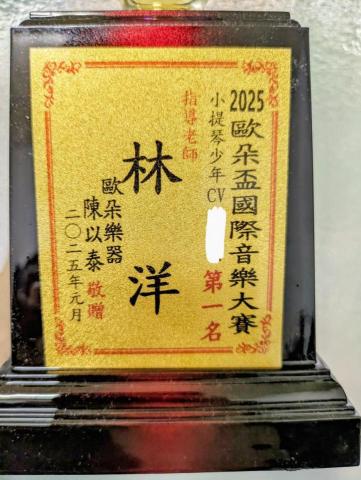 2025歐朵盃國際音樂大賽
小提琴少年CV
第一名
指導老師
林洋
歐朵樂器
陳以泰 敬贈
二〇二五年元月